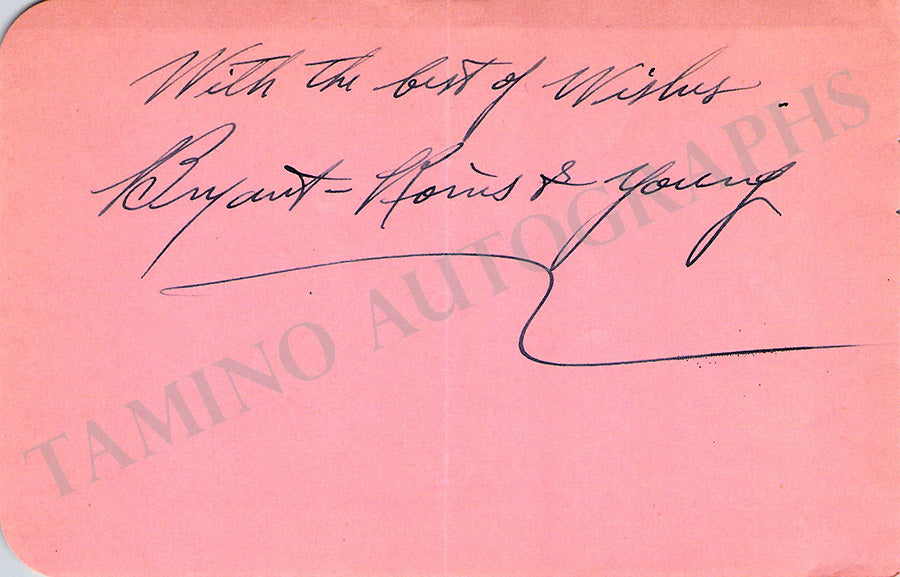 With the best of Wishes
Bryant - Rains & Young
TAMINO AUTOGRAPHS